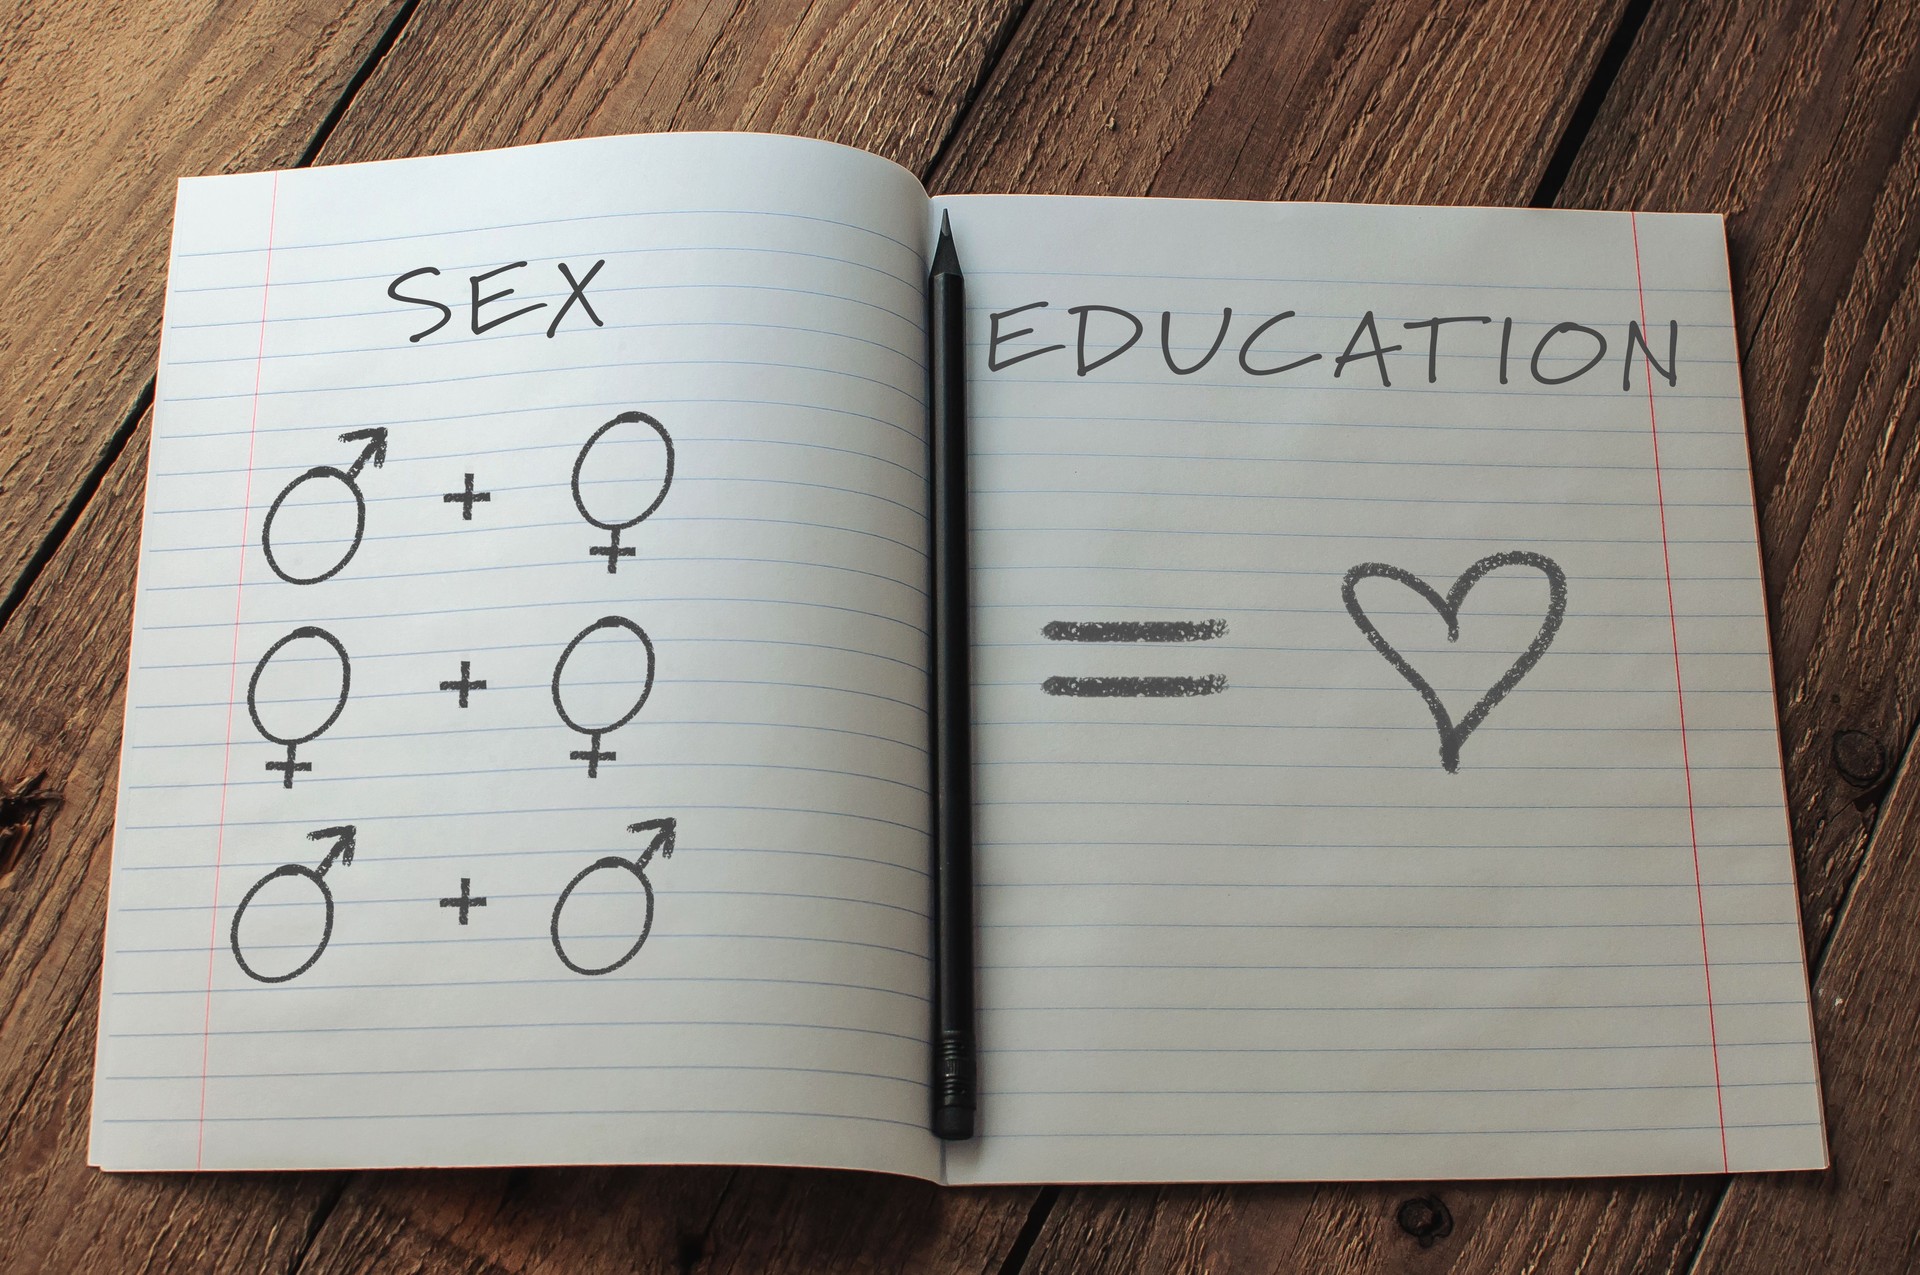 SEX EDUCATION
♂ + ♀
♀ + ♀
♂ + ♂
= ♡